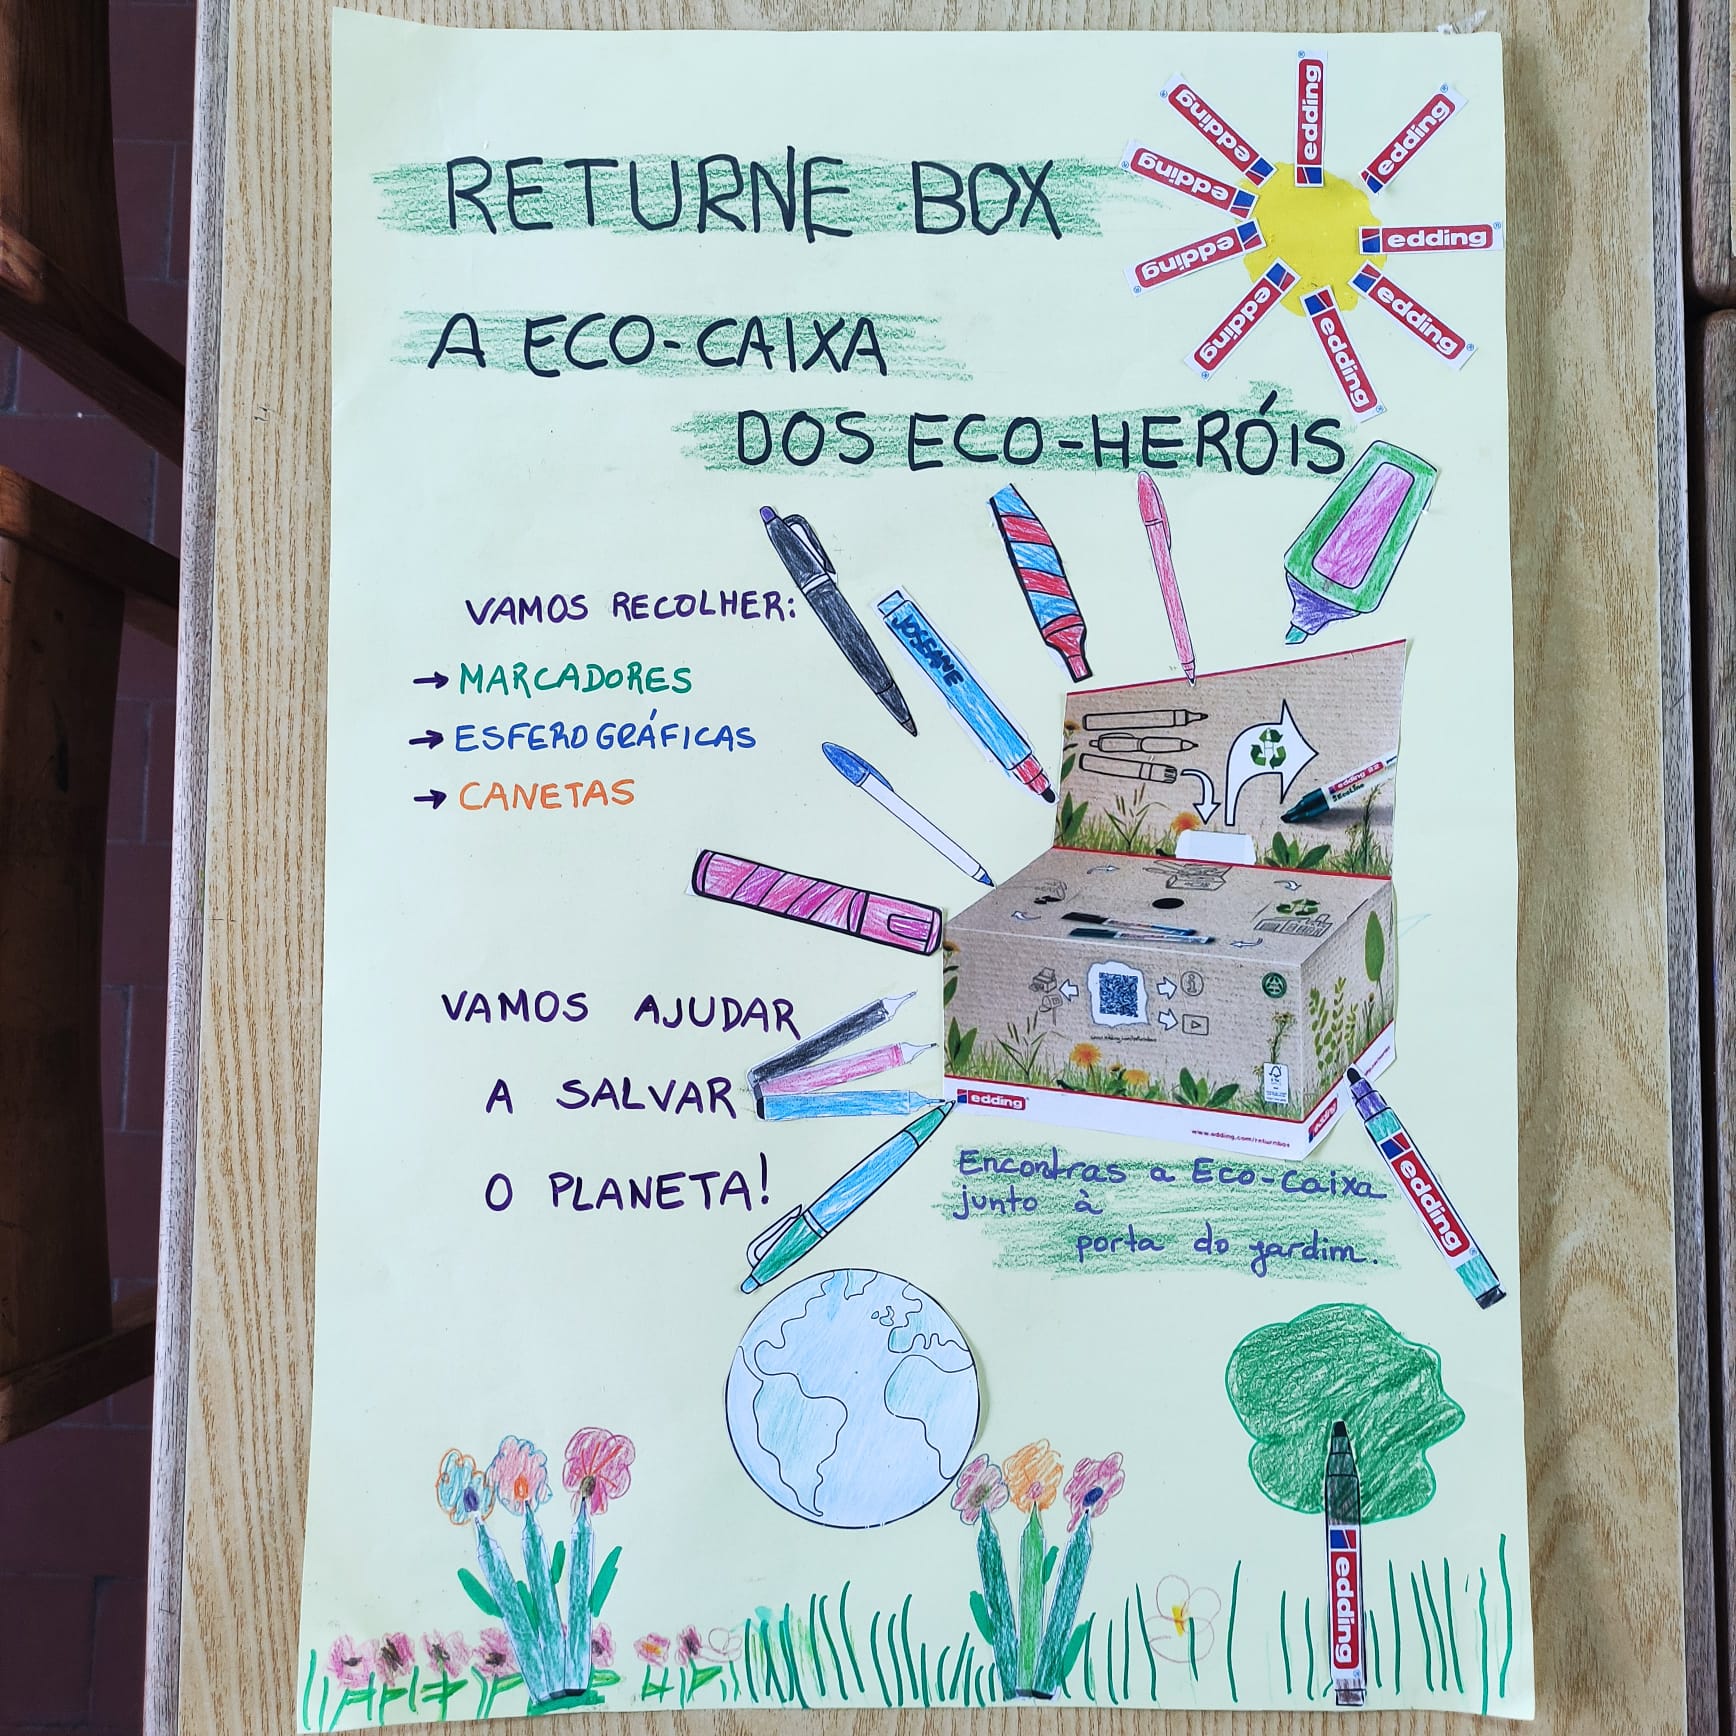 RETURNE BOX
edding
edding
edding
edding
edding
edding
edding
edding
edding
A ECO-CAIXA
DOS ECO-HERÓIS
VAMOS RECOLHER:
→ MARCADORES
→ ESFEROGRÁFICAS
→ CANETAS
JOSEANE
edding 22
EcoLine
VAMOS AJUDAR
A SALVAR
O PLANETA!
edding
www.edding.com/returnbox
edding
Encontras a Eco-Caixa
junto à
porta do jardim.
edding
edding